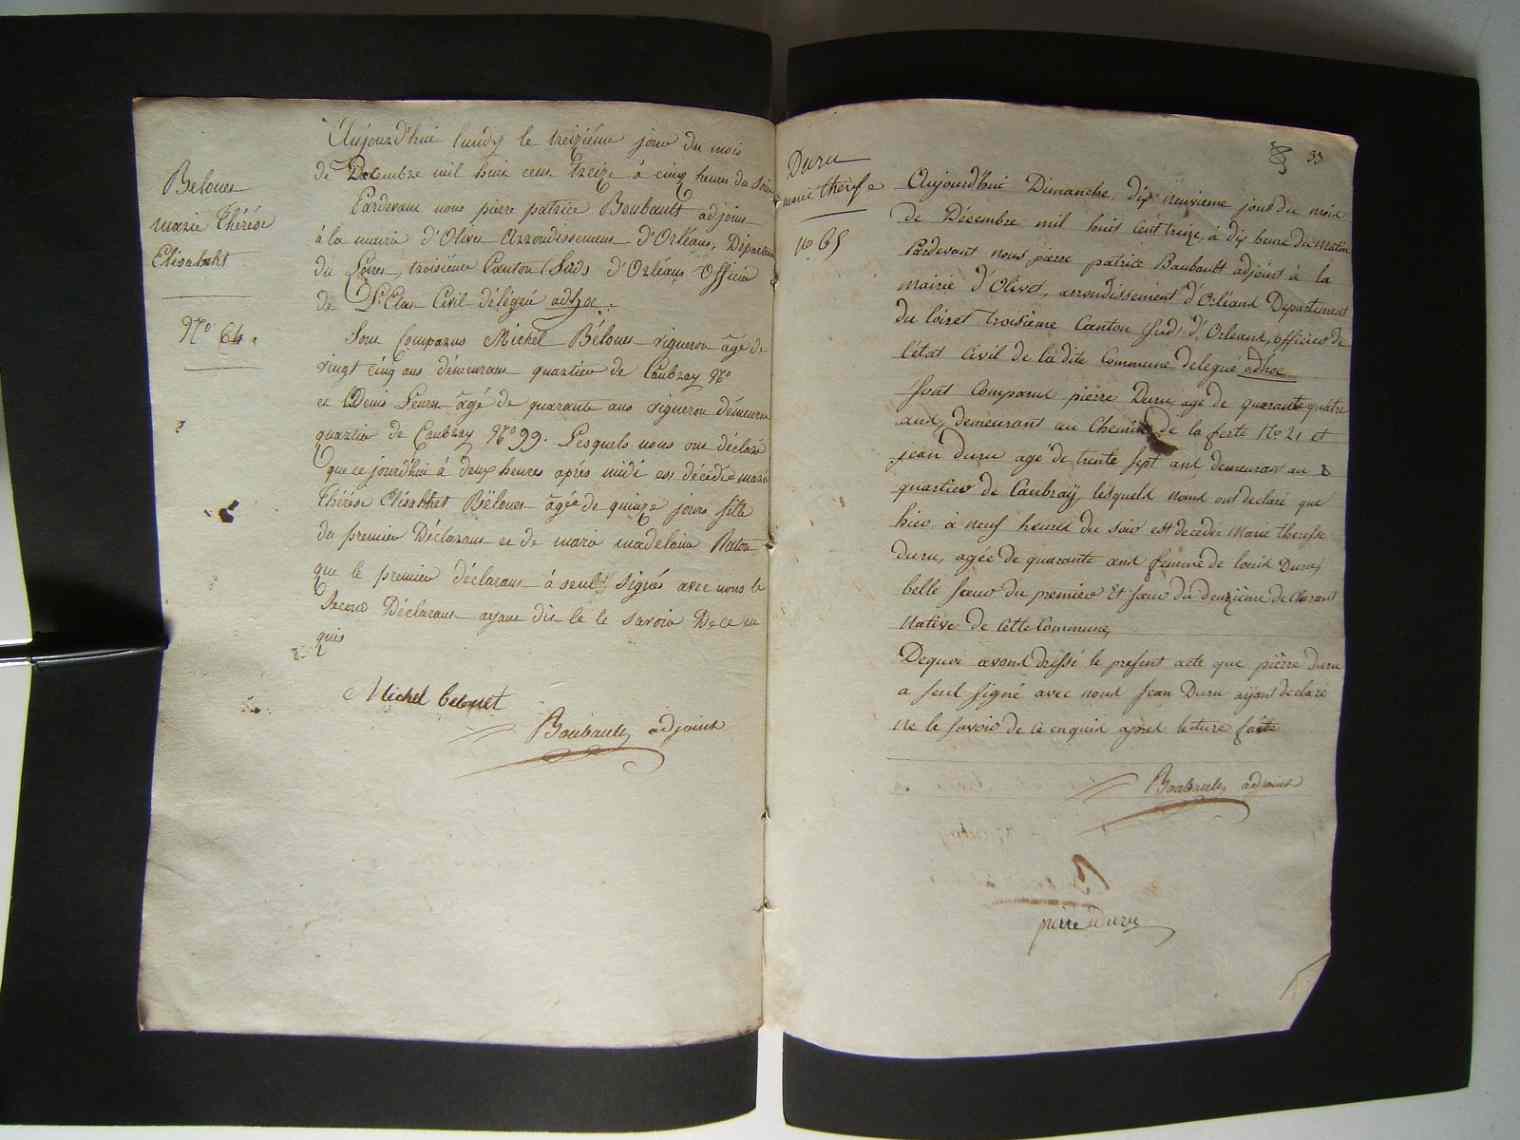 Belouet
Marie Thérése
Elisabeht
N.o 64.
Aujourd'hui lundy le treizième jour du mois
de Décembre mil huit cent treize à cinq heures du soir
Pardevant nous pierre patrice Boubault adjoint
à la mairie d'Olivet Arrondissement d'Orléans, Département
du Loiret, troisieme Canton (Sud) d'Orléans Officier
de L'Etat Civil délégué adhoc.
Sont Comparus Michel Bélouet vigneron âgé de
vingt cinq ans démeurant quartier de Caubray N.o
et Denis âgé de quarante ans vigneron démeurant
quartier de Caubray N.o 99. Lesquels nous ont déclaré
que ce jourd'hui à deux heures après midi est décédée marie
Thérése Elisabhet Bélouet âgée de quinze jours fille
du premier Déclarant et de marie madelaine
que le premier déclarant à seul signés avec nous le
Second Déclarant ayant dit le le savoir De ce en
quis
Michel belouet
Boubault adjoint
33
Duru
marie therese
no. 65
Aujourd'hui Dimanche, dix neuvieme jour du mois
de Décembre mil huit Cent treize, à dix heure du matin
Pardevant nous pierre patrice Boubault adjoint à la
mairie d'Olivet, arrondissement d'Orléans Departement
du loiret troisieme Canton (sud) d'Orleans, officier de
l'état Civil de la dite Commune delegué adhoc
Sont Comparus pierre Duru agé de quarante quatre
ans, demeurant au Chemin de la ferte No. 21 et
jean duru agé de trente sept ans demeurant au
quartier de Caubray, lesquels nous ont declaré que
hier à neuf heures du soir est decedée Marie therese
duru, agée de quarante ans femme de louis Duru,
belle soeur du premier Et soeur du deuxieme declarant
Native de Cette Commune,
Dequoi avons dressé le present acte que pierre duru
a seul signé avec nous jean Duru aijant declaré
ne le savoir de ce enquis après lecture faite
Boubault adjoint
pierre Duru